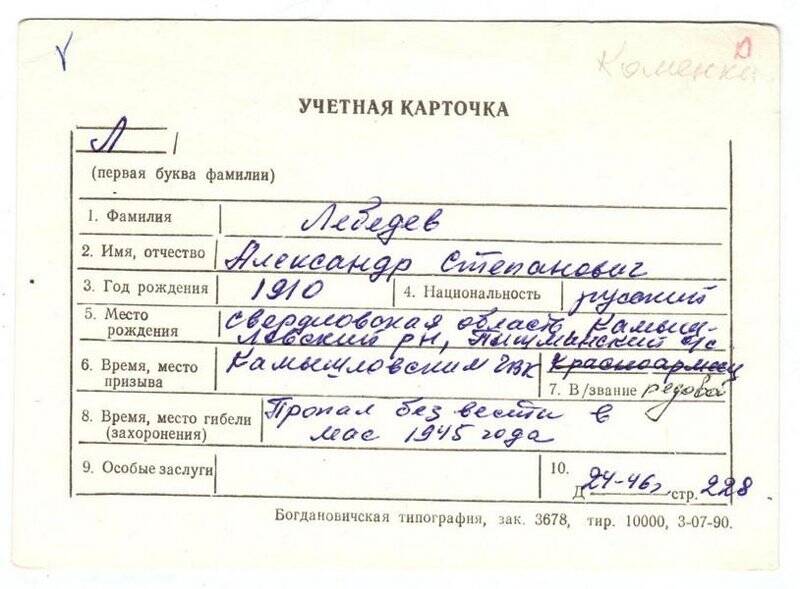 Каменка
УЧЕТНАЯ КАРТОЧКА
Л
(первая буква фамилии)
1. Фамилия Лебедев
2. Имя, отчество Александр Степанович
3. Год рождения 1910 4. Национальность русский
5. Место рождения Свердловская область, Камыш-
ловский рн, Пышминский с/с
6. Время, место призыва Камышловским ГВК
Красноармеец
7. В/звание редовой
8. Время, место гибели (захоронения) Пропал без вести в
мае 1945 года
9. Особые заслуги
10.
Д 24-46г стр. 228
Богдановичская типография, зак. 3678, тир. 10000, 3-07-90.